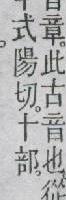 音章。此古音也。從
十。式陽切。十部。